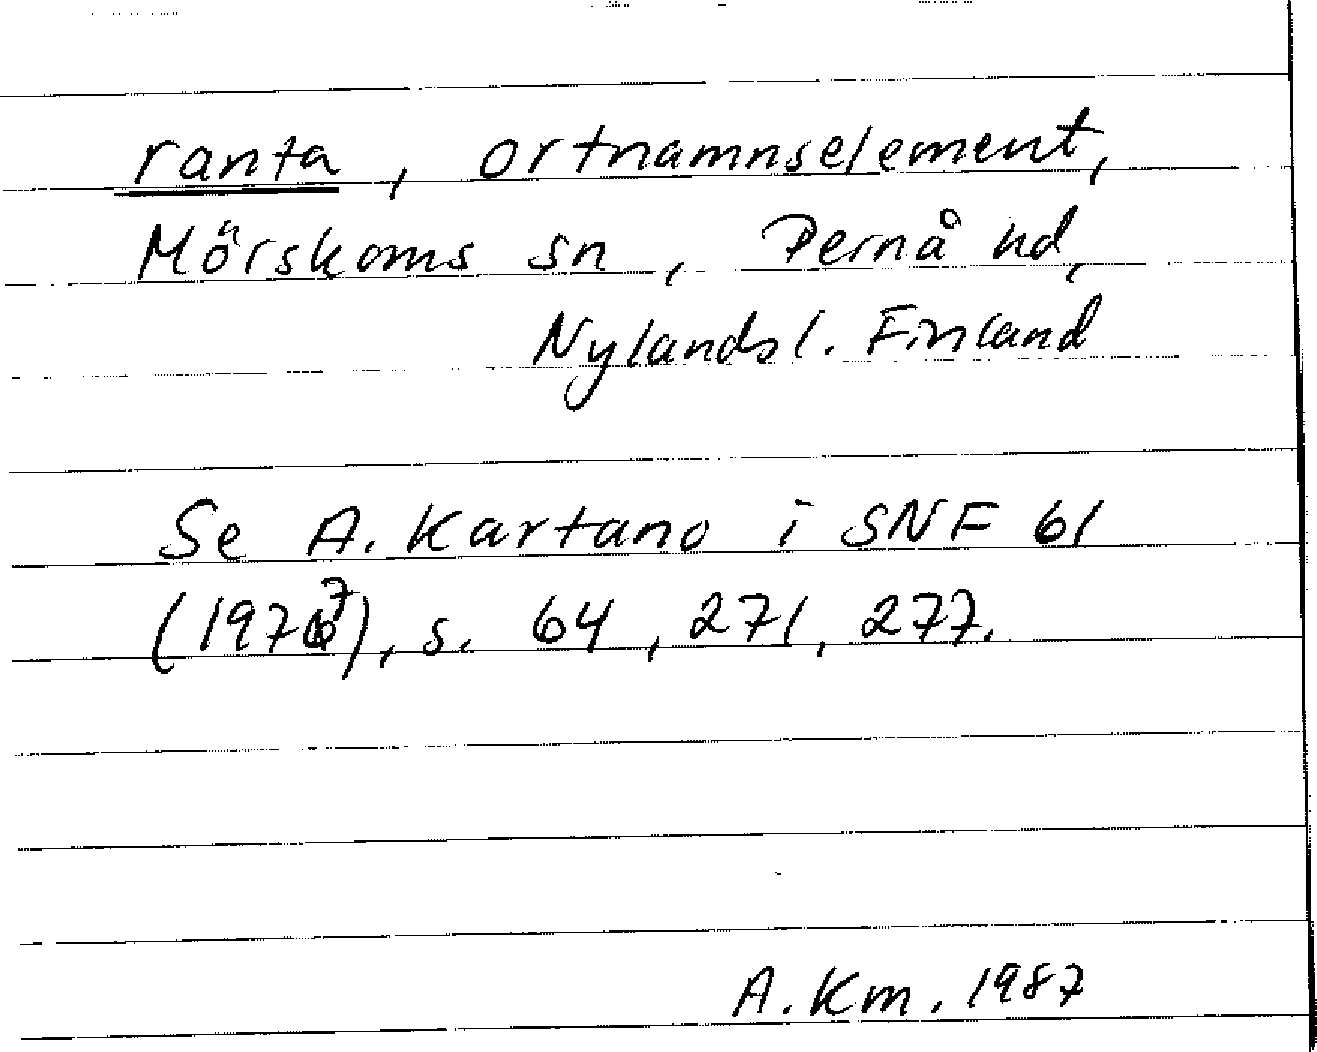 ranta, ortnamnselement,
Mörskoms sn, Pernå hd,
Nylandsl. Finland
Se A. Kartano i SNF 61
(1977), s. 64, 271, 277.
A. Km. 1987